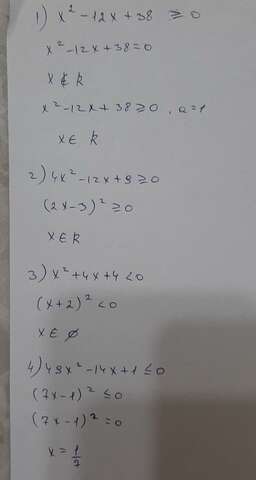 1) x² - 12x + 38 ≥ 0
x² - 12x + 38 = 0
x ∉ R
x² - 12x + 38 ≥ 0, a = 1
x ∈ R
2) 4x² - 12x + 9 ≥ 0
(2x - 3)² ≥ 0
x ∈ R
3) x² + 4x + 4 < 0
(x + 2)² < 0
x ∈ ∅
4) 49x² - 14x + 1 ≤ 0
(7x - 1)² ≤ 0
(7x - 1)² = 0
x = 1/7